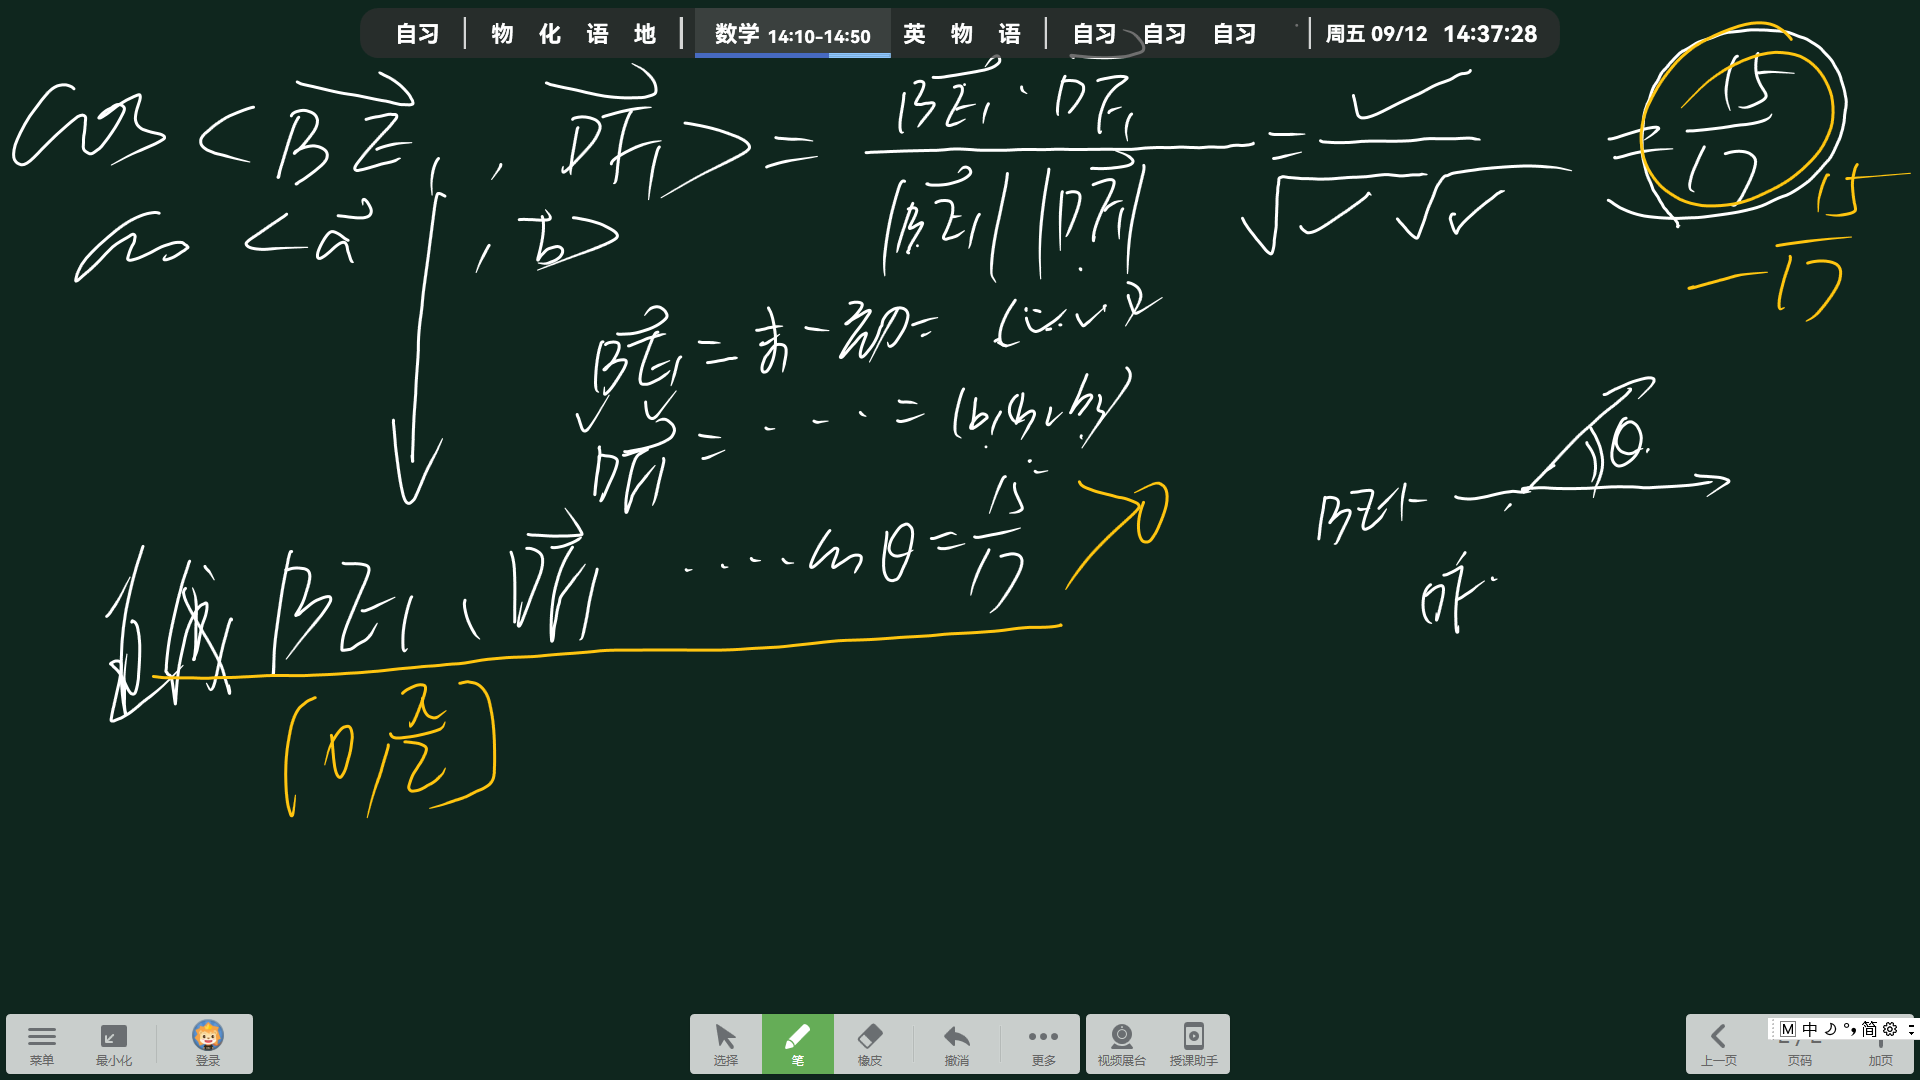 自习 | 物 化 语 地 | 数学 14:10-14:50 英 物 语 | 自习 自习 自习 | 周五 09/12 14:37:28
cos<BE₁, DF₁> = BE₁·DF₁ / |BE₁||DF₁| = ✓ / √✓ √✓ = 15/17
15/-17
cos<a, b>
BE₁ = 末-初 =
DF₁ = ···· = (b₁, b₂, b₃)
θ
BE₁
DF₁
直线 BE₁、DF₁ ···· cosθ = 15/17 > 0
(0, π/2]
菜单 最小化 登录 选择 笔 橡皮 撤消 更多 视频展台 授课助手 上一页 页码 加页
M 中 简